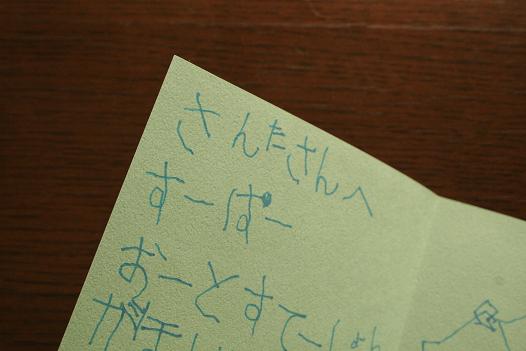 さんたさんへ
すーぱー
おーとすてーしょん
がほし